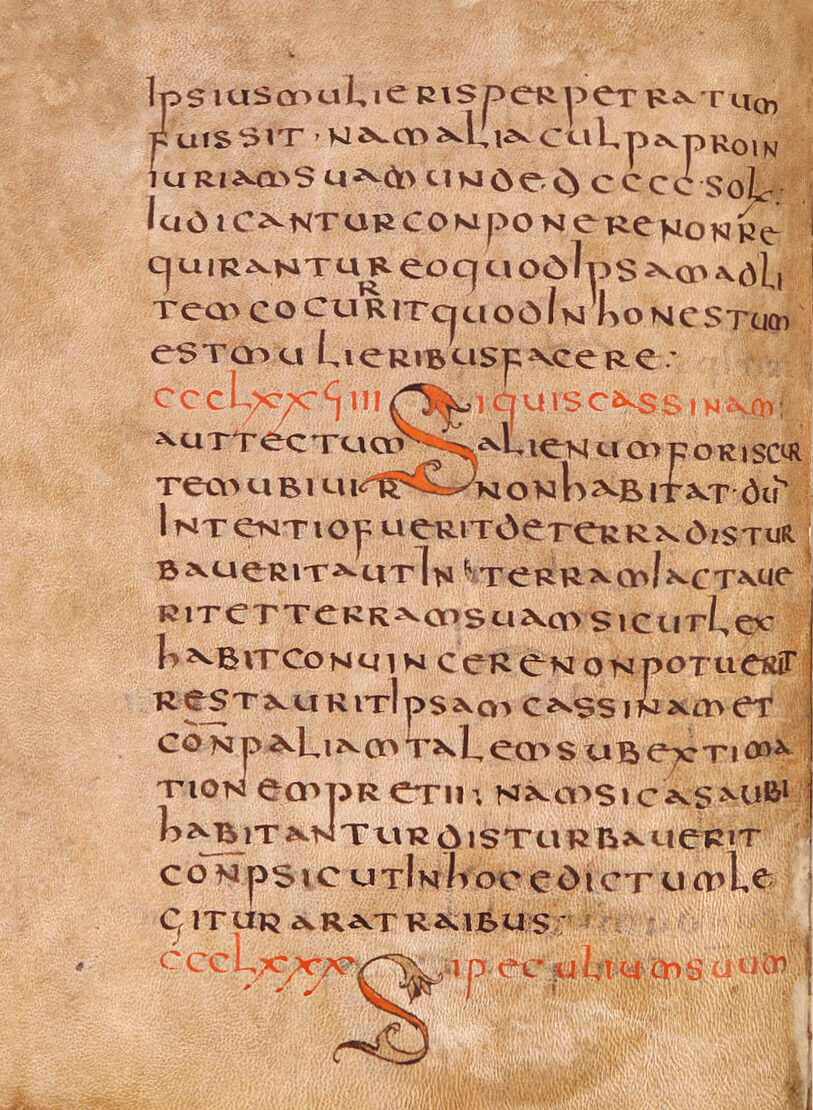 Ipsius mulieris perpetratum
fuissit · nam alia culpa pro in
iuriam suam unde · d cccc · sol:
Iudicantur conponere non re
quirantur eo quod Ipsam ad li
tem cocurRit quod Inhonestum
est mulieribus facere:
ccclxxϛiii Siquis cassinam
aut tectum alienum foris cur
tem ubi uir non habitat · dū
Intentio fuerit de terra distur
bauerit aut In terram Iactaue
rit et terram suam sicut lex
habit conuincere non potuerit
restaurit Ipsam cassinam et
con̄p aliam talem sub extima
tionem pretii; nam si casa ubi
habitantur disturbauerit
con̄p sicut In hoc edictum le
gitur aratraibus:
ccclxxx Si peculium suum